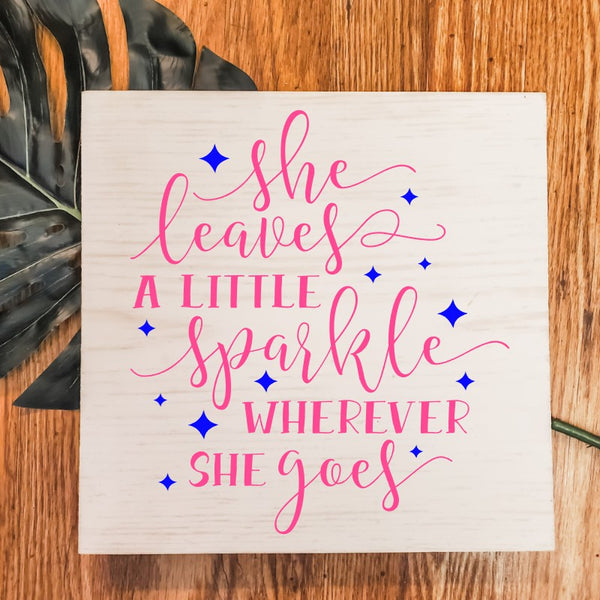 she
leaves
A LITTLE
sparkle
WHEREVER
SHE goes